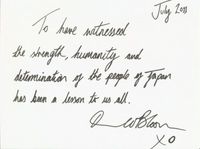 July 2011
To have witnessed
the strength, humanity and
determination of the people of Japan
has been a lesson to us all.
XO